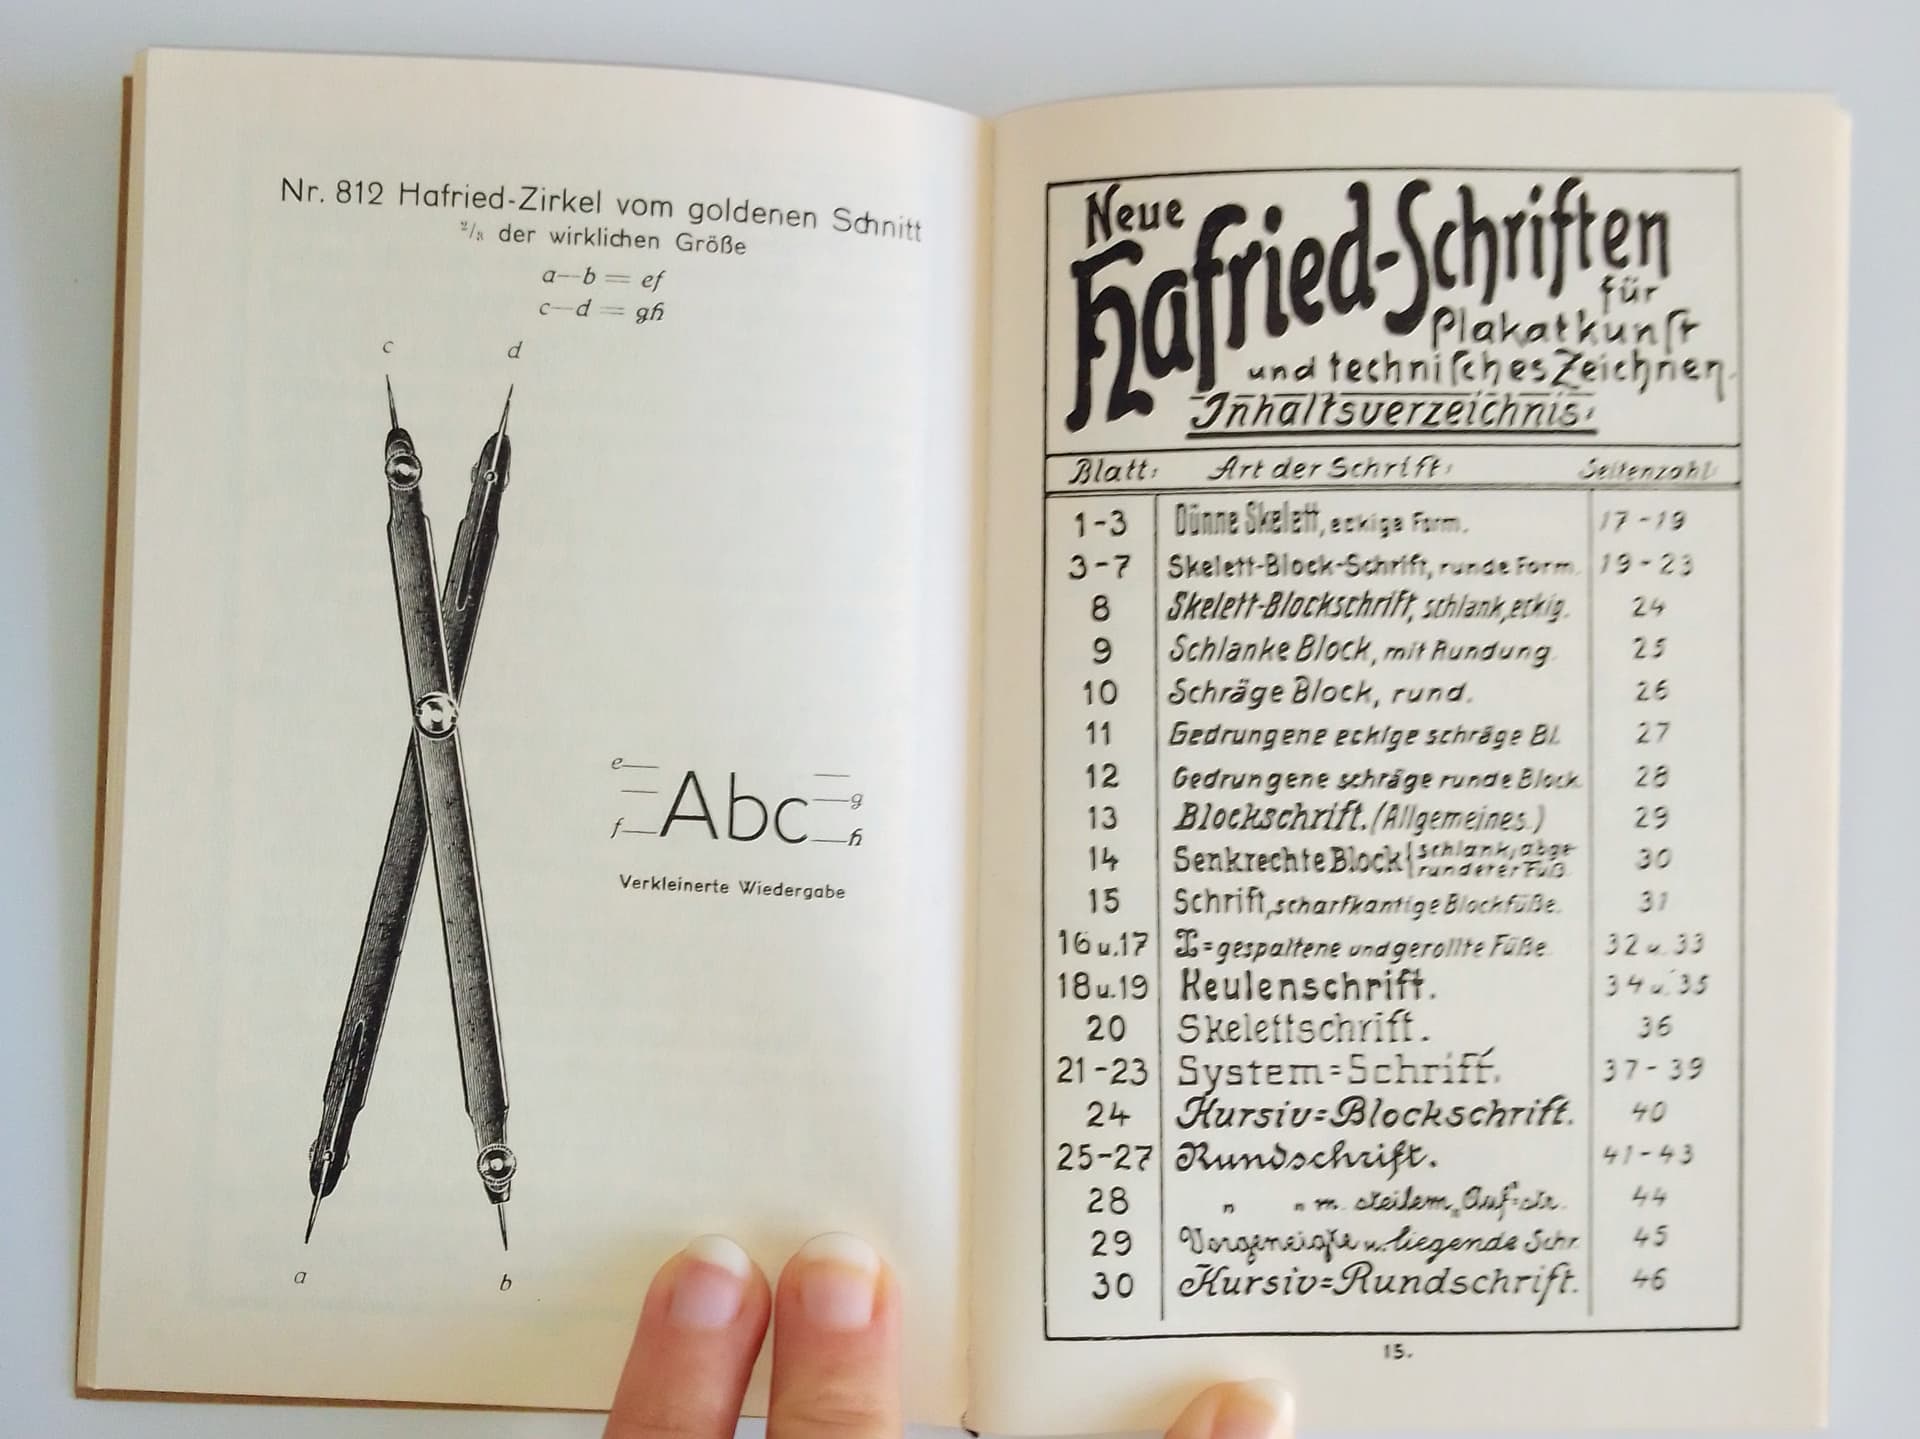 Nr. 812 Hafried-Zirkel vom goldenen Schnitt
2/3 der wirklichen Größe
a—b = ef
c—d = gh
c d
e
g
f Abc h
Verkleinerte Wiedergabe
a b
Neue
Hafried-Schriften
für
Plakatkunſt
und techniſches Zeichnen.
Inhaltsverzeichnis:
Blatt: Art der Schrift: Seitenzahl:
1-3 Dünne Skelett, eckige Form. 17-19
3-7 Skelett-Block-Schrift, runde Form. 19-23
8 Skelett-Blockschrift, schlank, eckig. 24
9 Schlanke Block, mit Rundung. 25
10 Schräge Block, rund. 26
11 Gedrungene eckige schräge Bl. 27
12 Gedrungene schräge runde Block. 28
13 Blockschrift. (Allgemeines.) 29
14 Senkrechte Block { schlank, abge-
runderer Fuß. 30
15 Schrift, scharfkantige Blockfüße. 31
16 u. 17 I = gespaltene und gerollte Füße. 32 u. 33
18 u. 19 Keulenschrift. 34 u. 35
20 Skelettschrift. 36
21-23 System=Schrift. 37-39
24 Kursiv=Blockschrift. 40
25-27 Rundschrift. 41-43
28 " " m. steilem „Auf=str. 44
29 Vorgeneigte u. liegende Schr. 45
30 Kursiv=Rundschrift. 46
15.